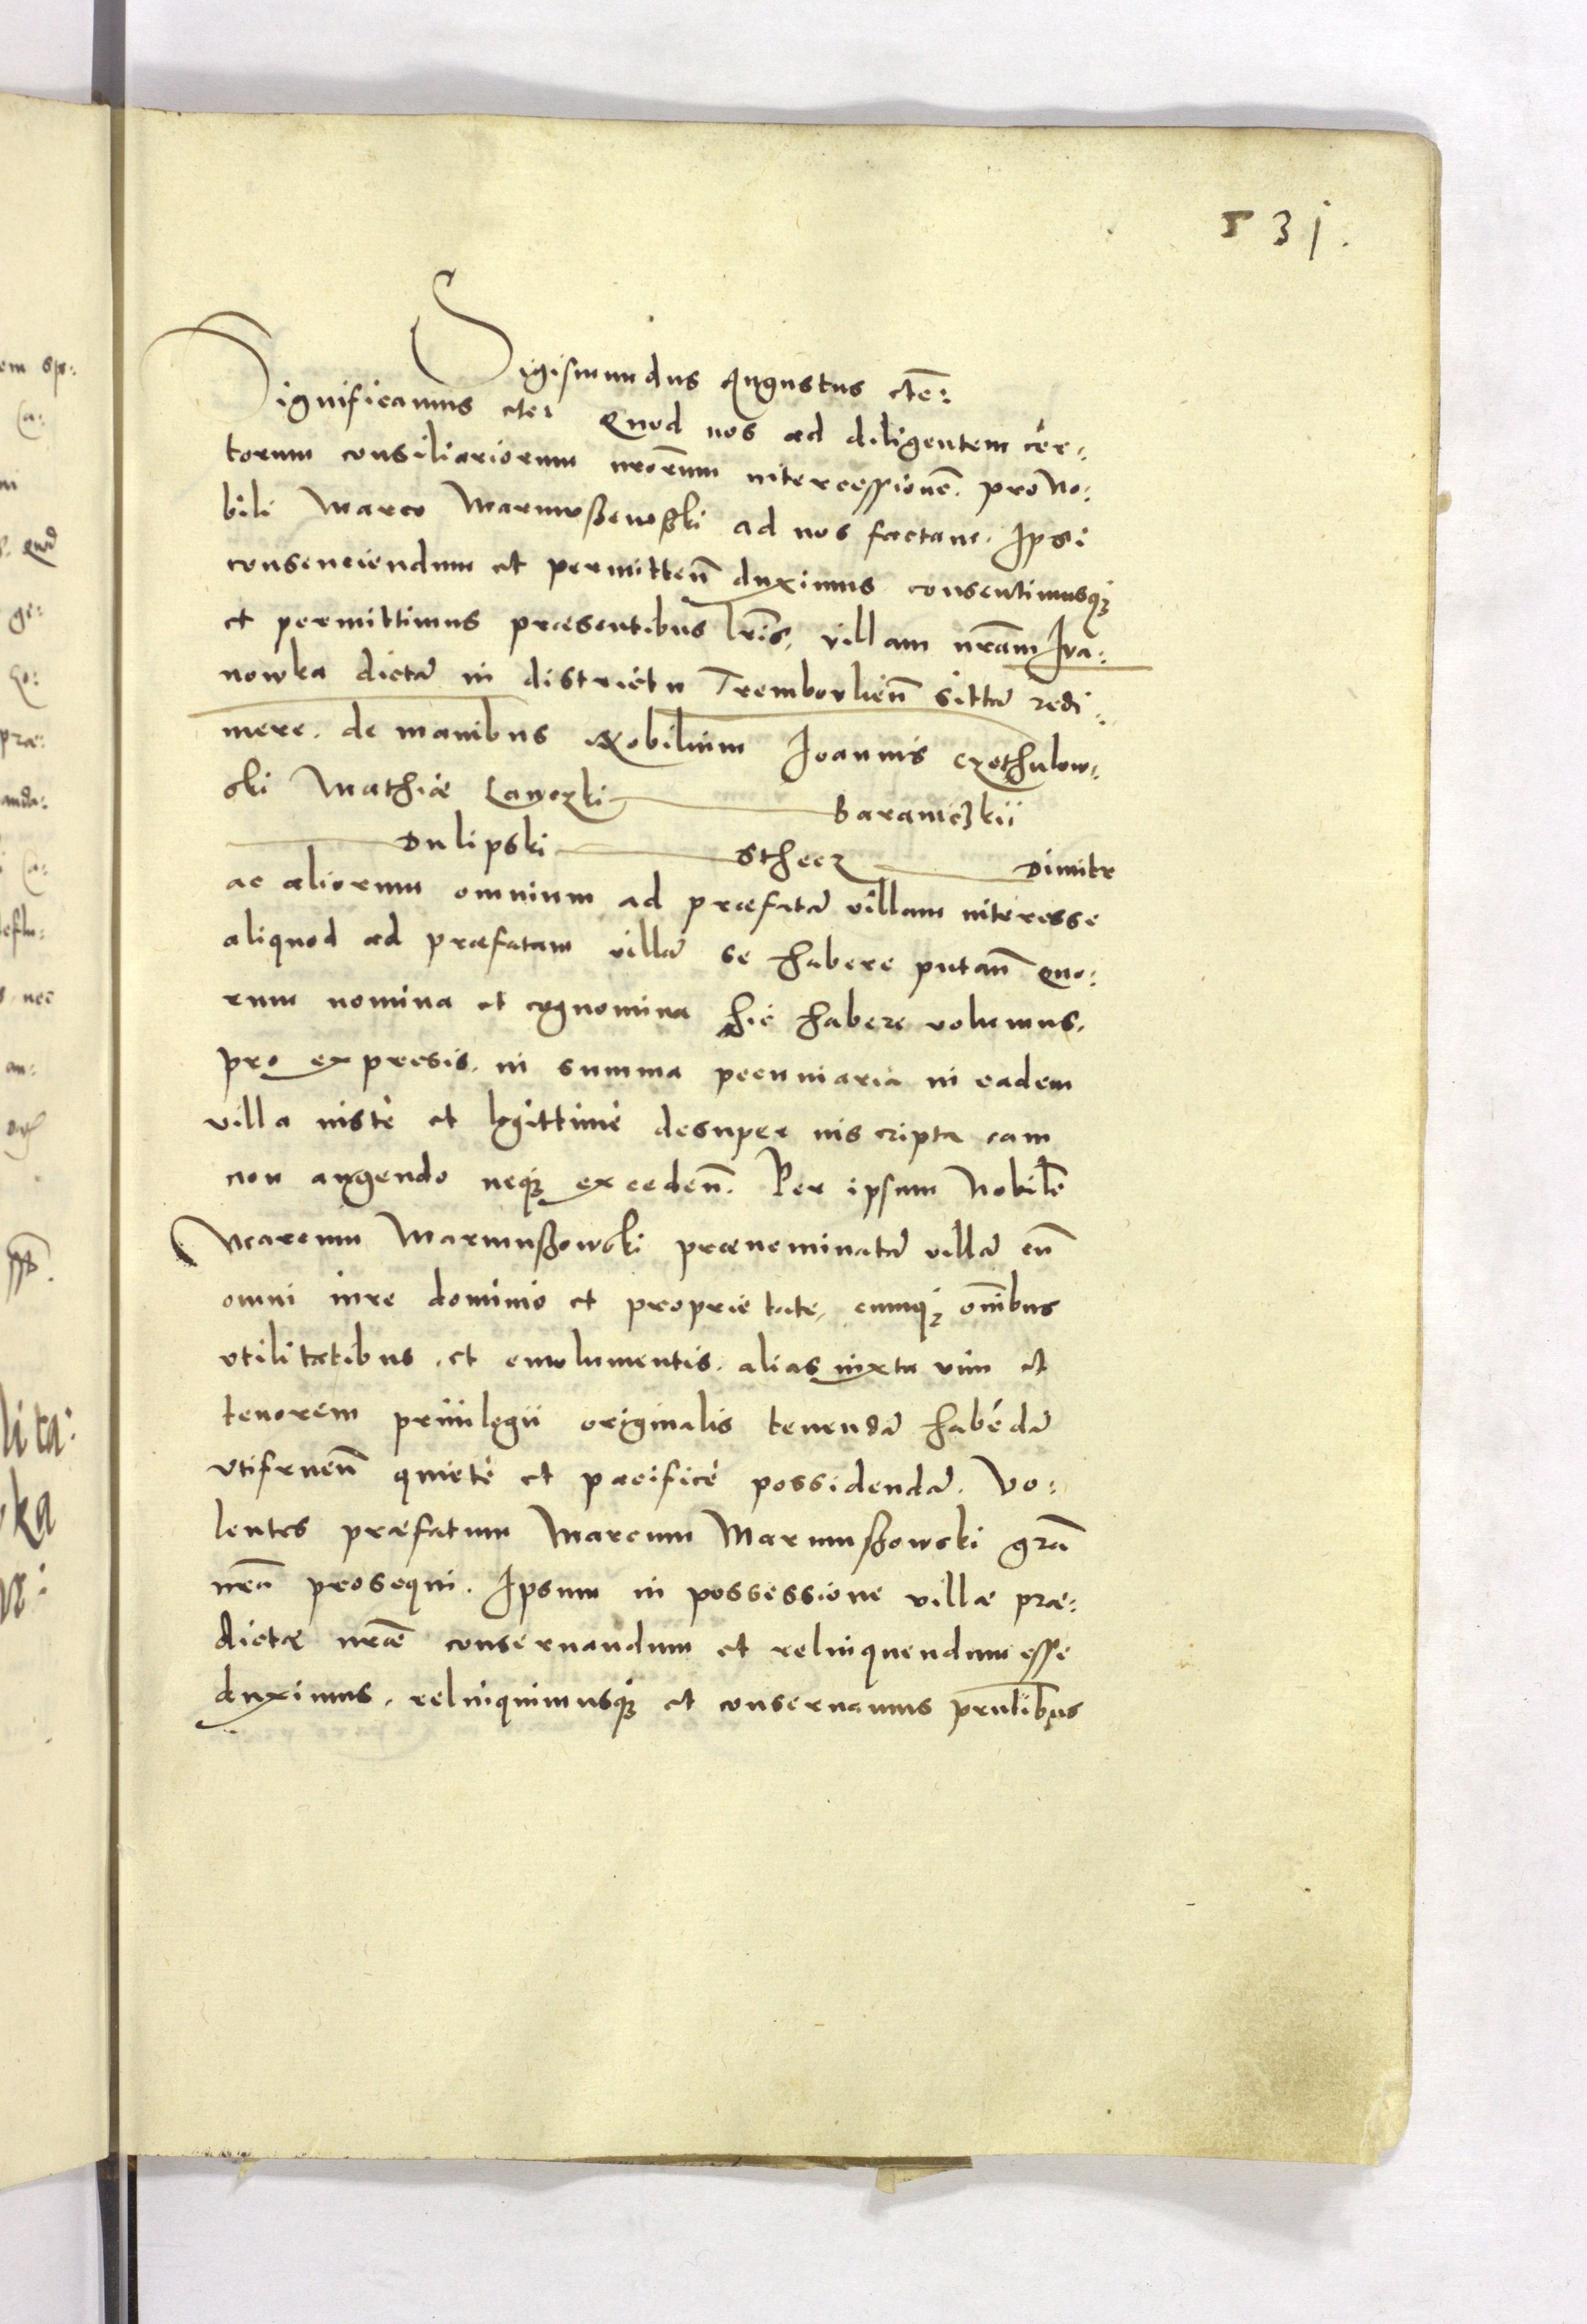 531.
Sigismundus Augustus etc:
Significamus etc: Quod nos ad diligentem cer:
torum consiliariorum nrorum intercessione. pro No:
bili Marco Marmuszewski ad nos factam. Ipsi
consenciendum et permitten duximus consentimusq;
et permittimus praesentibus lris, villam nram Iva:
nowka dicta in districtu Trembovlien sitta redi:
mere. de manibus Nobilium Joannis Czothulow:
ski Mathiae Laworzki Baranieczkii
Dulipski Sthecz Dimitr
ac aliorum omnium ad praefata villam interesse
aliquod ad praefatam villa se habere putan quo:
rum nomina et cognomina hic habere volumus.
pro expresis. in summa pecuniaria in eadem
villa iuste et legittime desuper inscripta eam
non augendo neq; exceden. Per ipsum Nobile
Marcum Marmuszowski praenominata villa cu
omni iure dominio et proprietate, cumq; omibus
utilitatibus. et emolumentis. alias iuxta vim et
tenorem privilegii originalis tenenda habeda
utifruen quiete et pacifice possidenda. Vo:
lentes praefatum Marcum Marmuszowski gra
nra prosequi. Ipsum in possessione villae prae:
dictae nrae conservandum et relinquendum esse
duximus. relinquimusq; et conservamus pntibus
em sp:
ca:
quod
ge:
prae:
anda:
nec
an:
lita:
ka